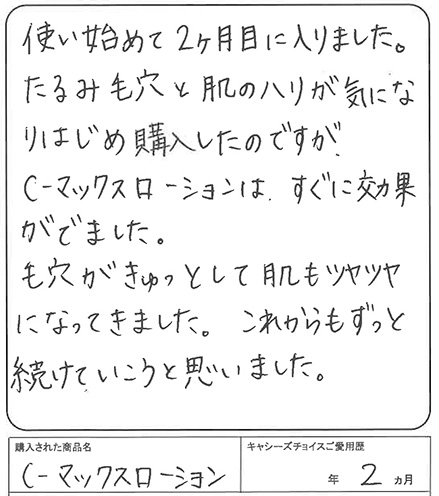 使い始めて2ヶ月目に入りました。
たるみ毛穴と肌のハリが気にな
りはじめ購入したのですが、
C-マックスローションは、すぐに効果
がでました。
毛穴がきゅっとして肌もツヤツヤ
になってきました。これからもずっと
続けていこうと思いました。
購入された商品名
キャシーズチョイスご愛用歴
C-マックスローション
年 2 ヵ月